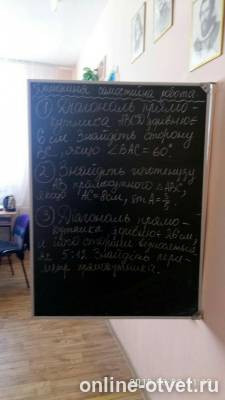 Домашня самостійна робота
① Діагональ прямо-
кутника ABCD дорівнює
6 см. Знайдіть сторону
якщо ∠BAC = 60°.
② Знайдіть гіпотенузу
AB прямокутного △ABC,
якщо AC = 8см,
③ Діагональ прямо-
кутника дорівнює 26 см,
а його сторони відносяться
як 5:12. Знайдіть пери-
метр прямокутника.
online-otvet.ru